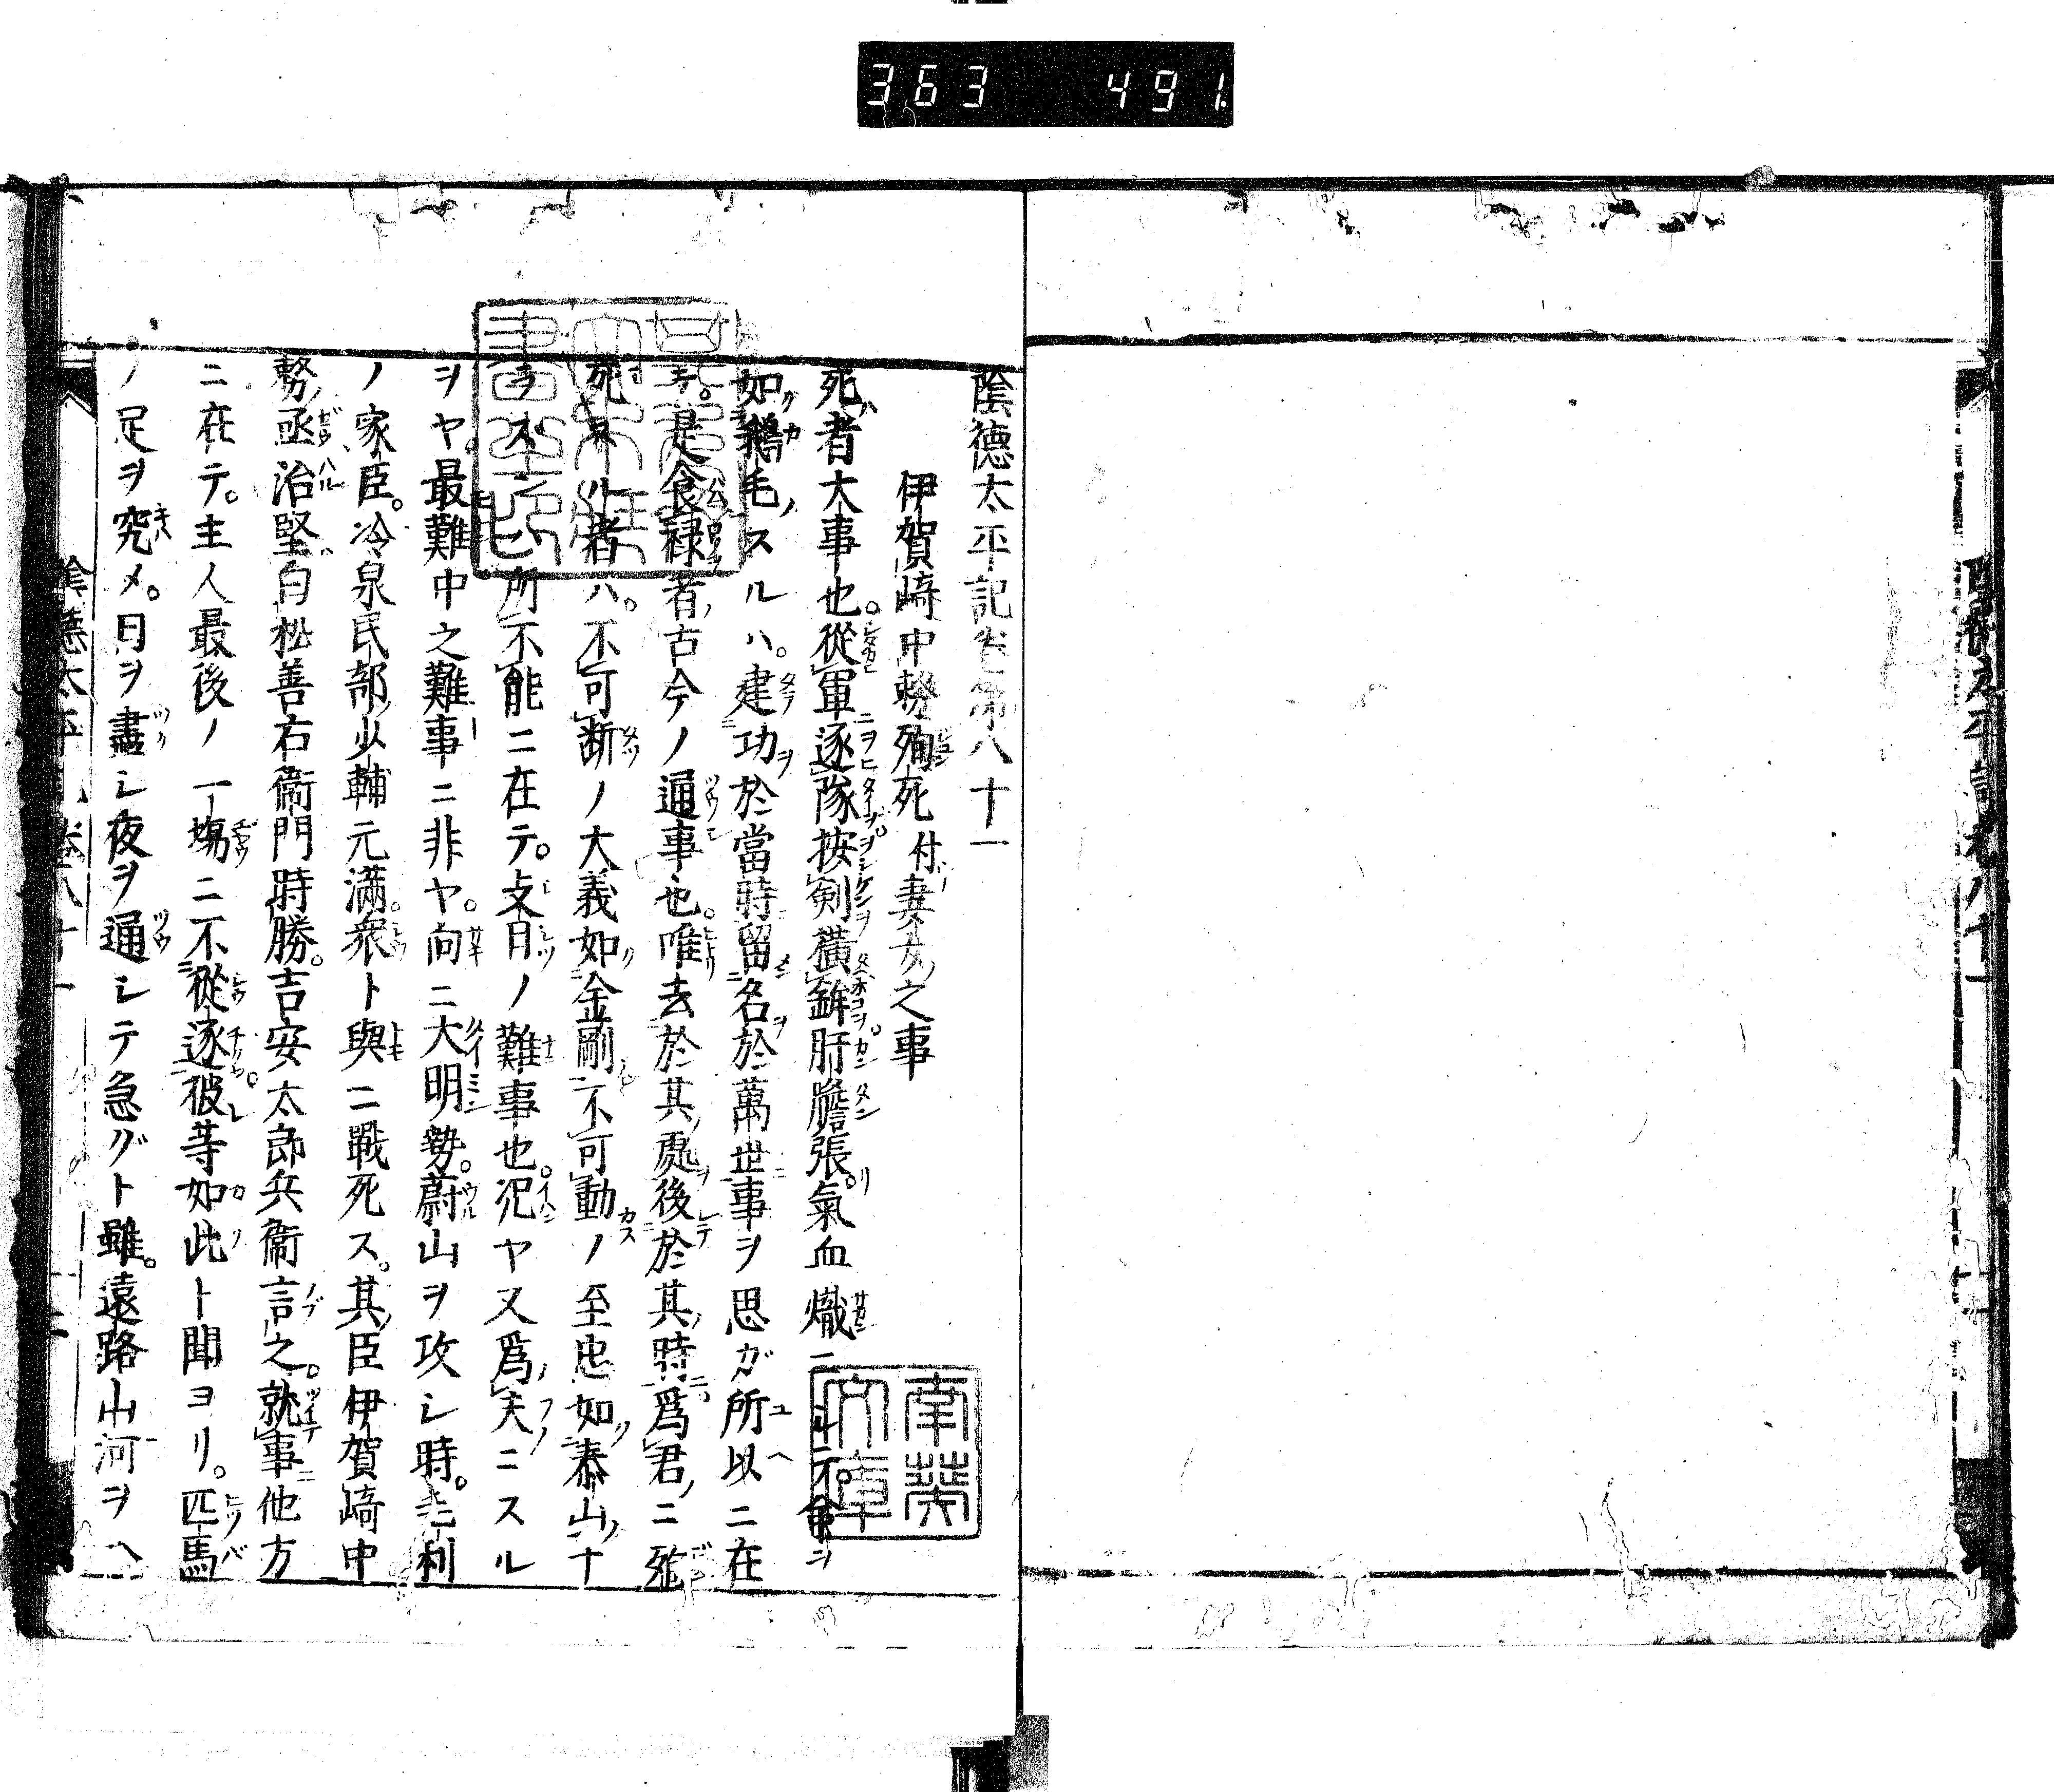 363 491
陰徳太平記巻第八十一
伊賀﨑中務殉死付妻女之事
死者大事也。從軍逐隊按剣横鉾肝膽張氣血熾ニシテ。命ヲ
如鵝毛スルハ。建功於當時留名於萬世事ヲ思ガ所以ニ在
是食禄者古今ノ通事也。唯去於其處後於其時爲君ニ
死スル者ハ。不可断ノ大義如金剛不可動ノ至忠如泰山
所不能ニ在テ。支日ノ難事也。况ヤ又爲夫ニスル
ヲヤ最難中之難事ニ非ヤ。向ニ大明勢。蔚山ヲ攻シ時。毛利
ノ家臣。冷泉民部少輔元滿。衆ト與ニ戰死ス。其臣伊賀﨑中
務丞治堅白松善右衞門時勝。吉安太郎兵衞言之。就事他方
ニ在テ。主人最後ノ一塲ニ不從逐。彼等如此ト聞ヨリ。匹馬
ノ足ヲ究メ。日ヲ盡シ夜ヲ通シテ急グト雖。遠路山河ヲ
陰徳太平記巻八十一
南葵文庫